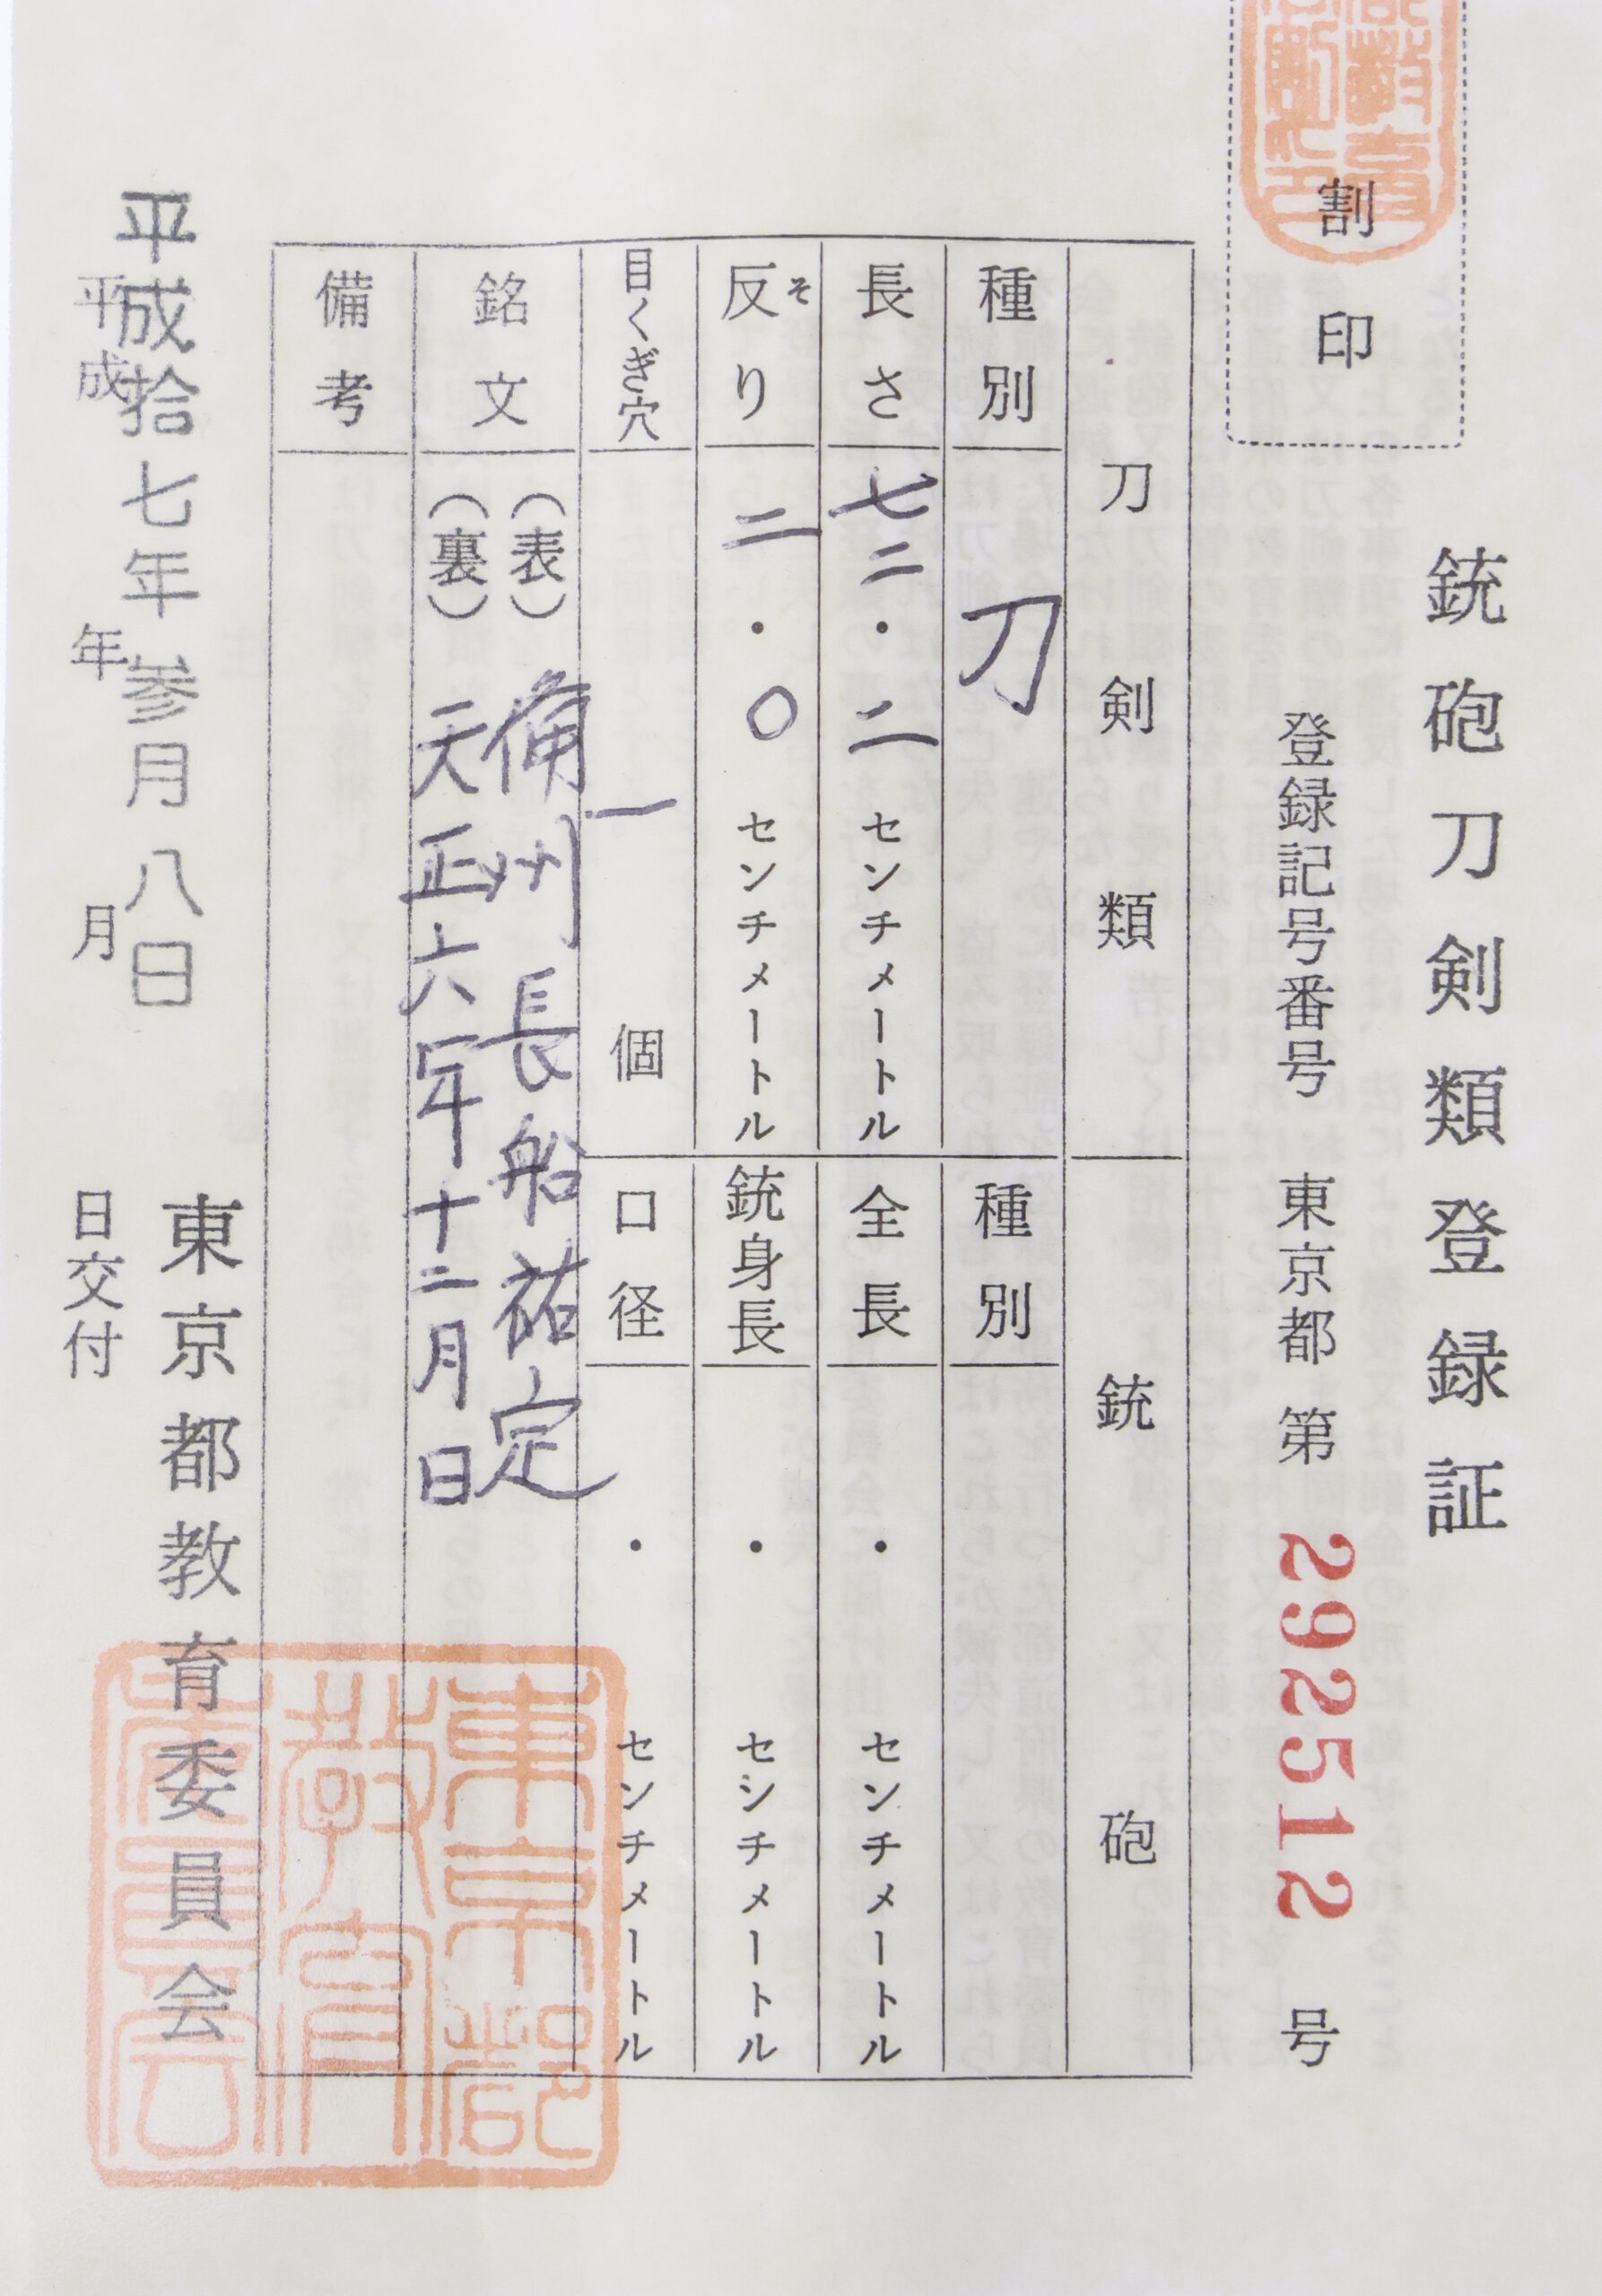 銃砲刀剣類登録証
割印
登録記号番号 東京都 第 292512 号
刀剣類
種別 刀
長さ 七二・二 センチメートル
反り 二・〇 センチメートル
そ
目くぎ穴 一 個
銘文 (表) 備州長船祐定
(裏) 天正六年十二月日
備考
銃砲
種別
全長 ・ センチメートル
銃身長 ・ センチメートル
口径 ・ センチメートル
平成拾七年参月八日
平成 年 月 日交付
東京都教育委員会
東京都
教育
委員会